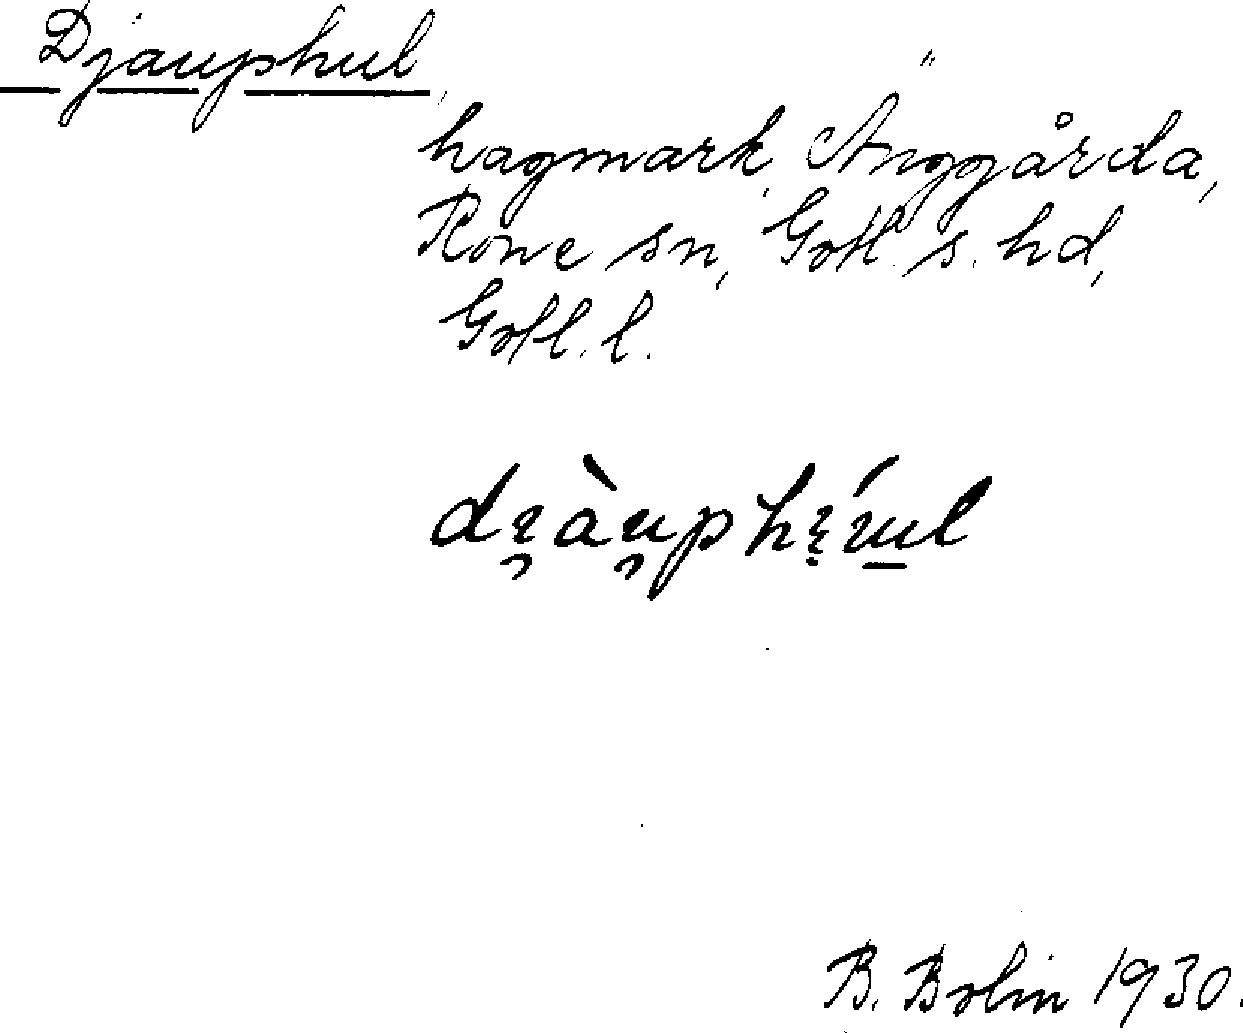 Djauphul,
hagmark, Änggårda,
Rone sn, Gotl. s. hd,
Gotl. l.
B. Bolin 1930.